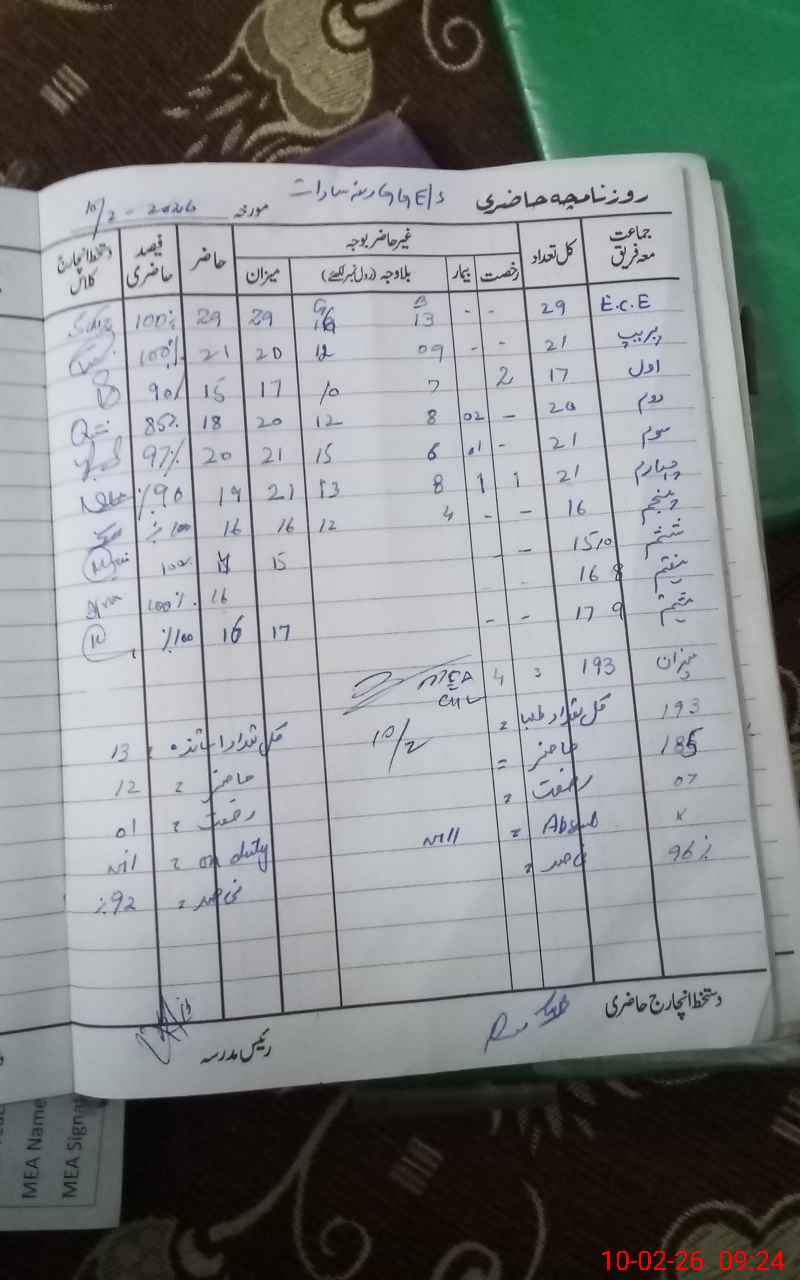 روزنامچہ حاضری GGE/S سادات مورخہ 10/2-2026
جماعت معہ فریق کل تعداد غیر حاضر بوجہ حاضر فیصد حاضری دستخط انچارج کلاس
رخصت بیمار بلاوجہ (رول نمبر لکھئے) میزان
E.C.E 29 - - B 13 G 16 29 29 100%
پریپ 21 - - 09 12 20 21 100%
اول 17 2 7 10 17 15 90%
دوم 20 - 02 8 12 20 18 85%
سوم 21 - 01 6 15 21 20 97%
چہارم 21 1 1 8 13 21 19 %90
پنجم 16 - - 4 12 16 16 % 100
ششم 15 10 - - 15 100%
ہفتم 16 8 16 100%
ہشتم 17 9 - - 17 16 %100
میزان 193 3 4 MEA
193 کل تعداد طلبا = 10/2 کل تعداد اساتذہ : 13
185 حاضر = حاضر = 12
07 رخصت = رخصت = 01
x Absent = Nill on duty = Nil
96% فی صد = فی صد = %92
دستخط انچارج حاضری
رئیس مدرسہ
MEA Name
MEA Signat
10-02-26 09:24